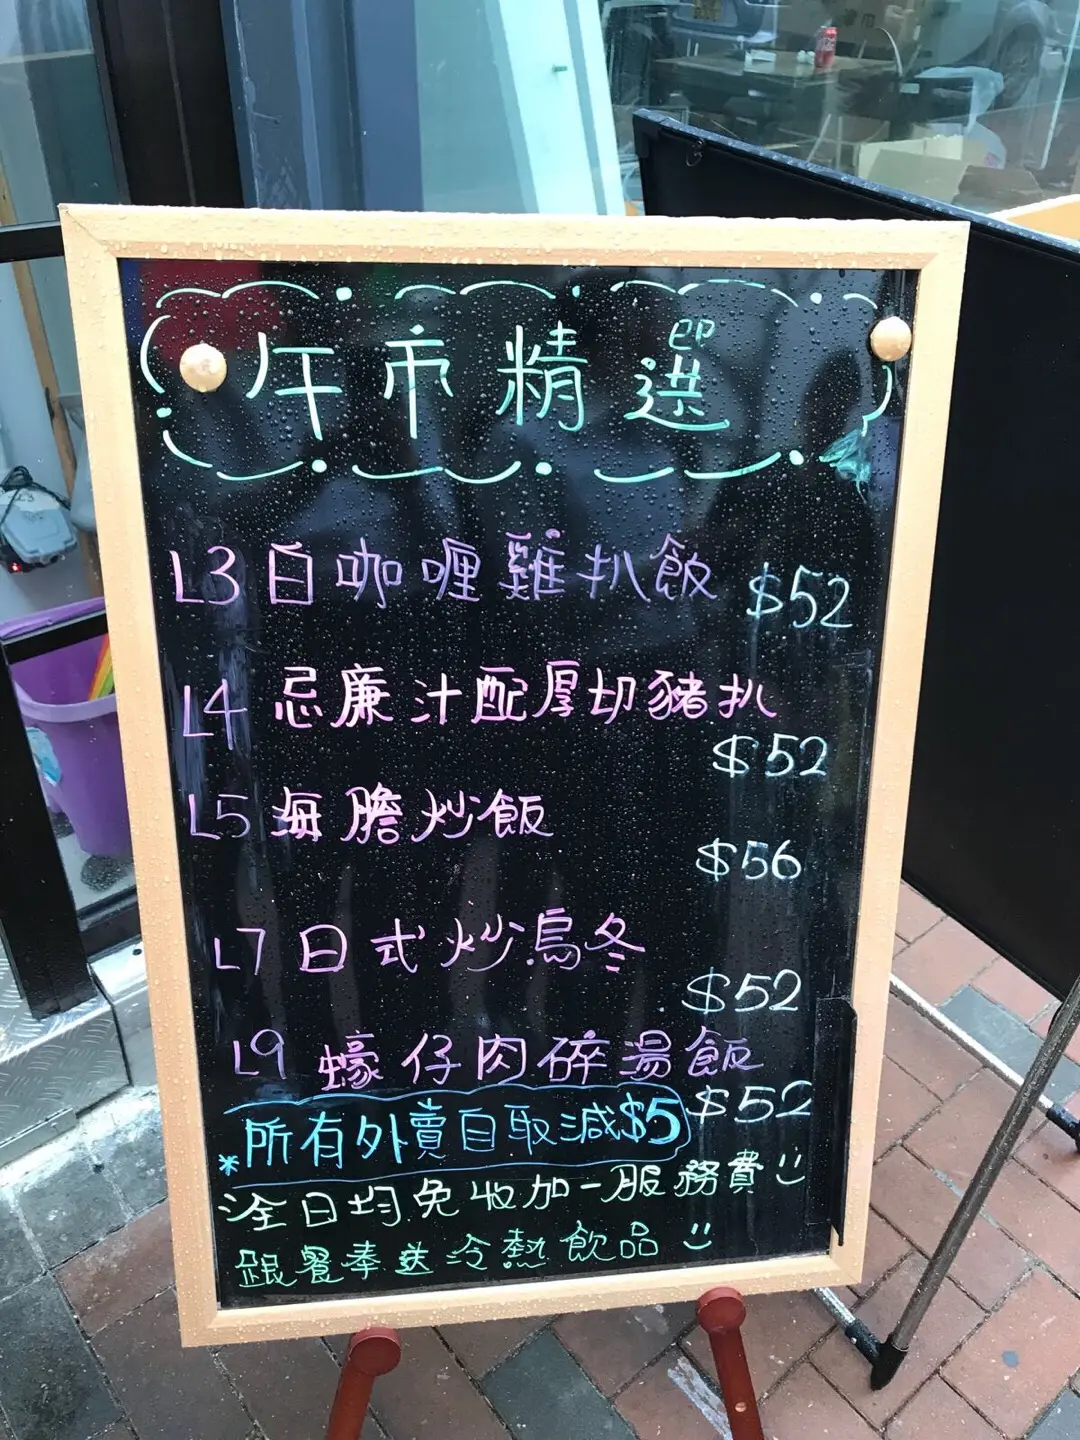 午市精選
L3 白咖喱雞扒飯 $52
L4 忌廉汁配厚切豬扒
$52
L5 海膽炒飯
$56
L7 日式炒烏冬
$52
L9 蠔仔肉碎湯飯
$52
*所有外賣自取減$5
全日均免收加一服務費
跟餐奉送冷熱飲品